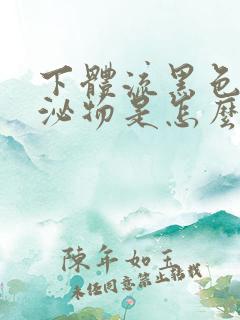 下體流黑色
泌物是怎麼
陳年如玉
未任同意禁止轉載